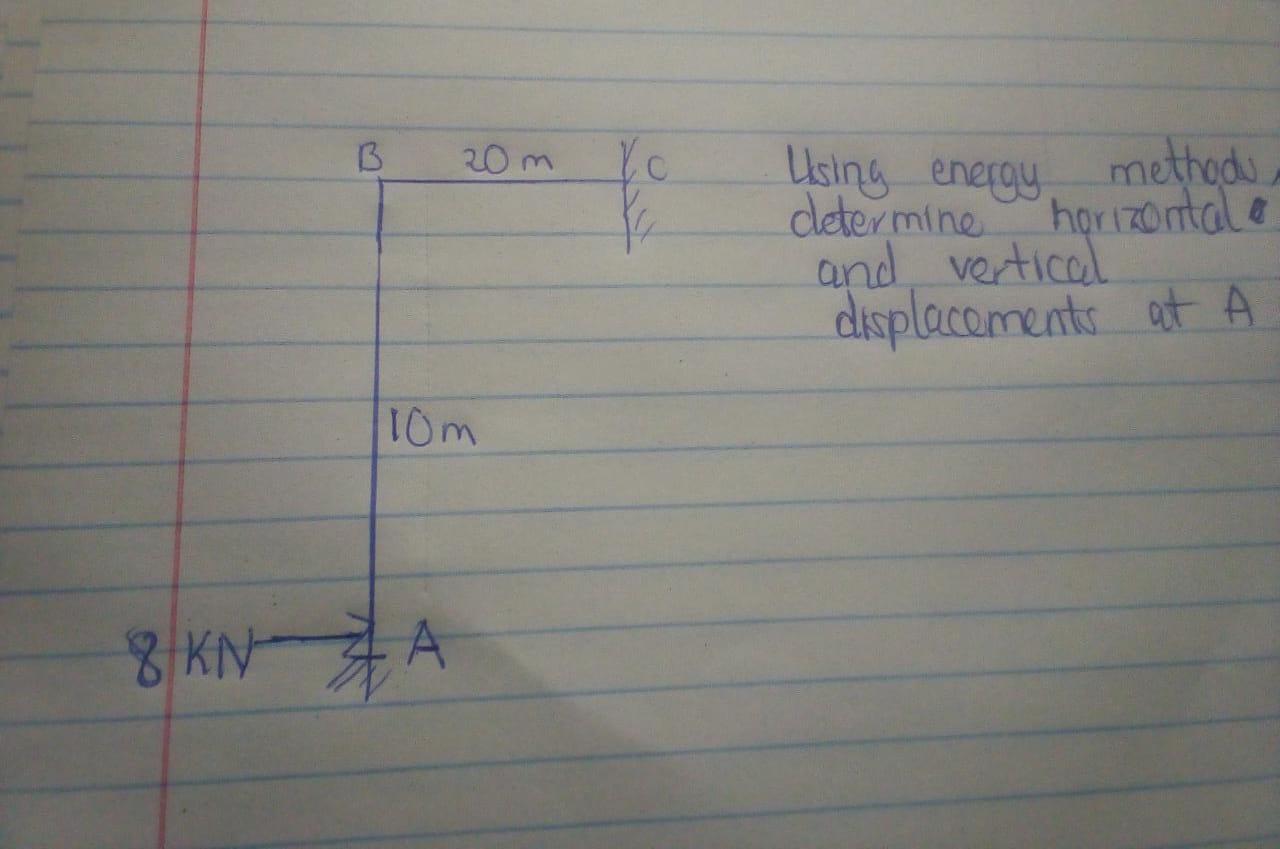 B 20m C
Using energy methods,
determine horizontal
and vertical
displacements at A
10m
8 KN A